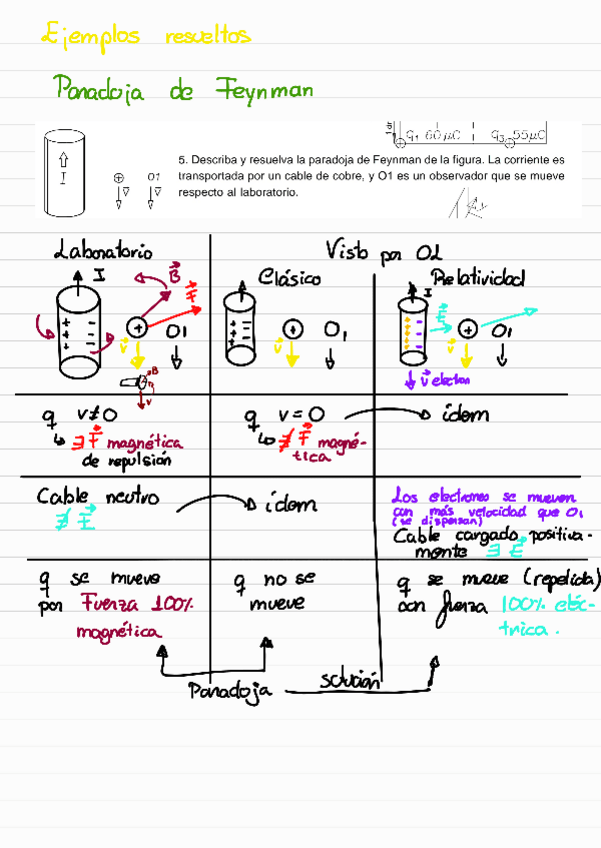 Ejemplos resueltos
Paradoja de Feynman
q₁ 60μC q₃ 55μC
5. Describa y resuelva la paradoja de Feynman de la figura. La corriente es
transportada por un cable de cobre, y O1 es un observador que se mueve
respecto al laboratorio.
I
O1
v v
Laboratorio
Visto por O1
Clásico
Relatividad
I
B
F
O₁
v
B
q
v
O₁
v
I
E
O₁
v
v electron
q v≠0
↳ ∃ F magnética
de repulsión
q v=0
↳ ∄ F magné-
tica
idem
Cable neutro
∄ E
idem
Los electrones se mueven
con más velocidad que O₁
(se dispersan)
Cable cargado positiva-
mente ∃ E
q se mueve
por Fuerza 100%
magnética
q no se
mueve
q se mueve (repelida)
con fuerza 100% eléc-
trica.
Paradoja
solución